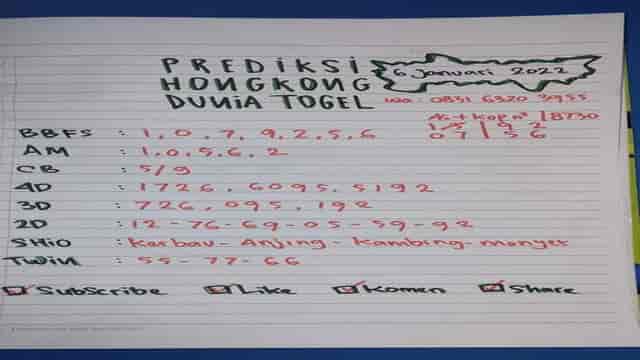 PREDIKSI
HONGKONG
DUNIA TOGEL
6 Januari 2022
wa: 0831 6320 3955
As + Kop n° / 8730
1 5 | 9 2
0 7 | 5 6
BBFS : 1, 0, 7, 9, 2, 5, 6
AM : 1, 0, 5, 6, 2
CB : 5/9
4D : 1726, 6095, 5192
3D : 726, 095, 192
2D : 12-76-69-05-59-92
SHIO : Kerbau-Anjing-Kambing-monyet
TWIN : 55-77-66
Subscribe Like Komen Share